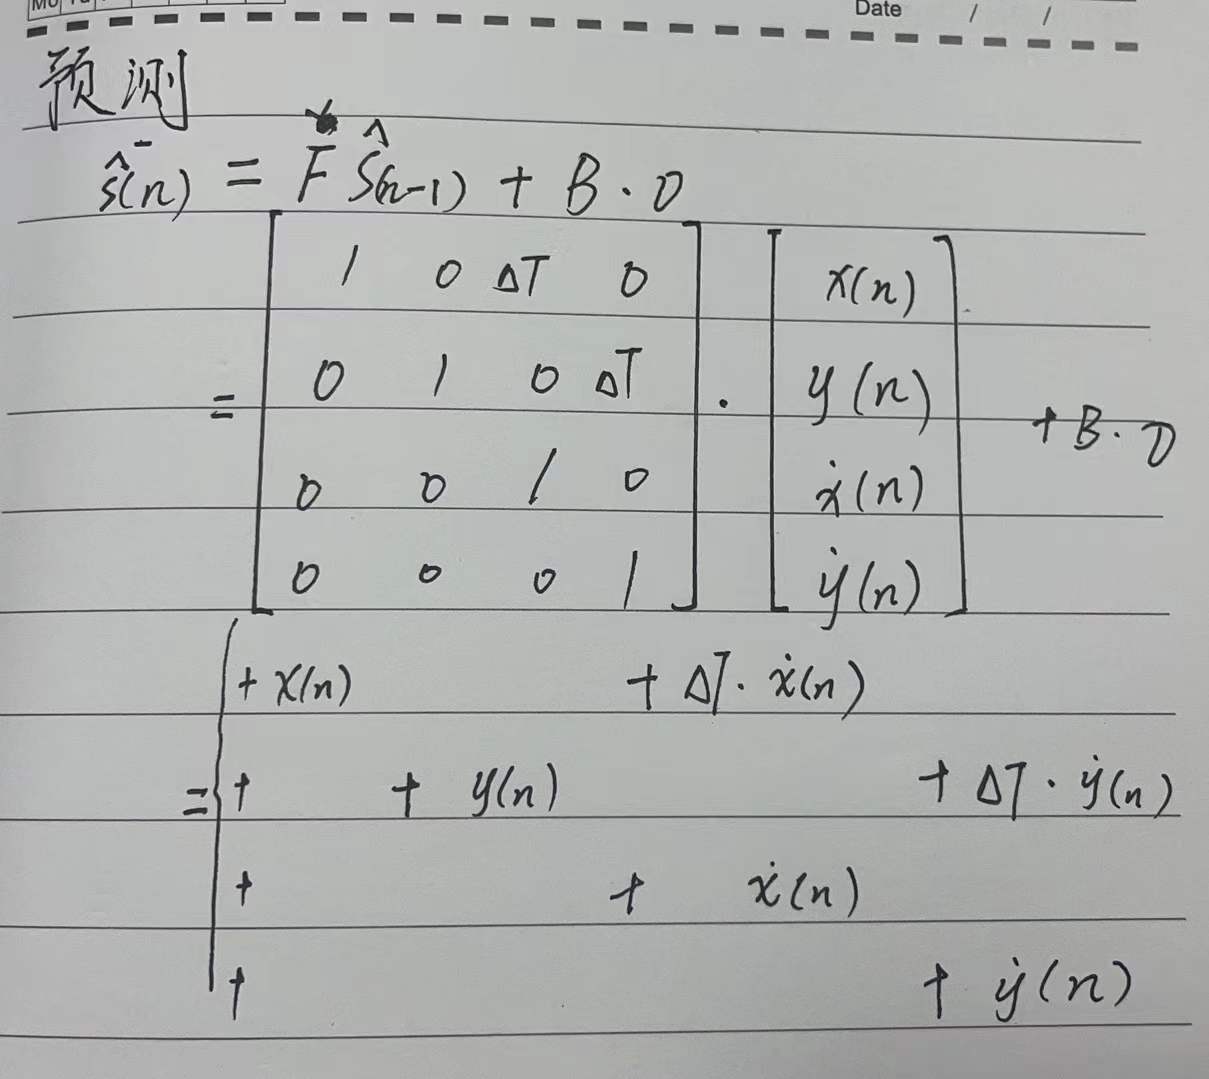 Date / /
预测
ŝ⁻(n) = F Ŝ(n-1) + B · 0
= [ 1 0 ΔT 0 ; 0 1 0 ΔT ; 0 0 1 0 ; 0 0 0 1 ] · [ x(n) ; y(n) ; ẋ(n) ; ẏ(n) ] + B · 0
= { + x(n) + ΔT · ẋ(n)
+ + y(n) + ΔT · ẏ(n)
+ + ẋ(n)
+ + ẏ(n)